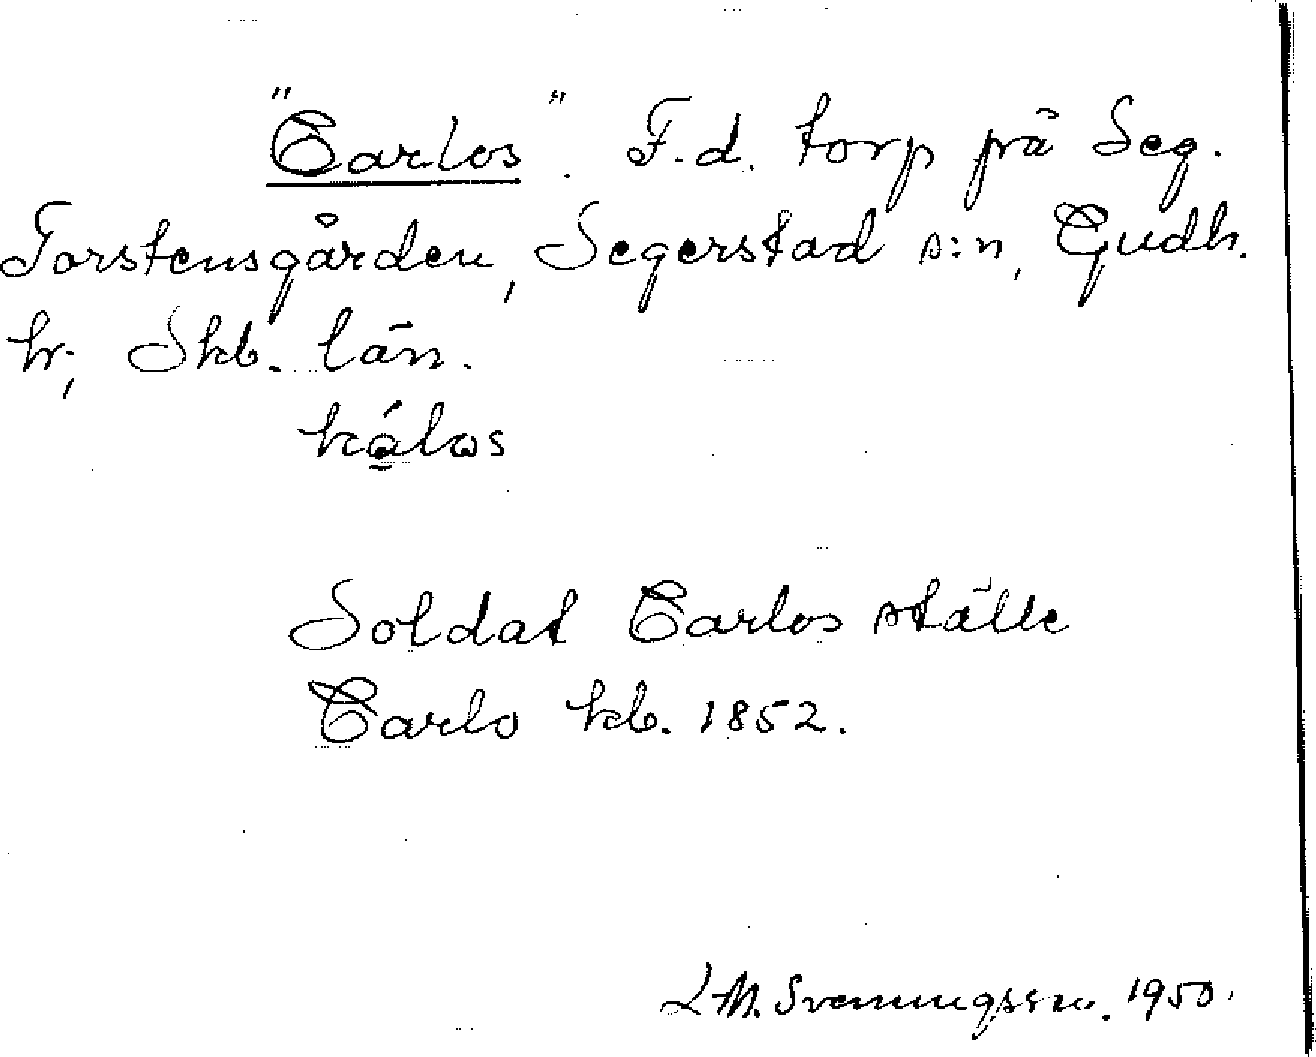 "Carlos". F.d. torp på Seg.
Torstensgården, Segerstad s:n, Gudh.
hr, Skb. län.
kálos
Soldat Carlos ställe
Carlo kb. 1852.
L M. Svenungsson. 1950.